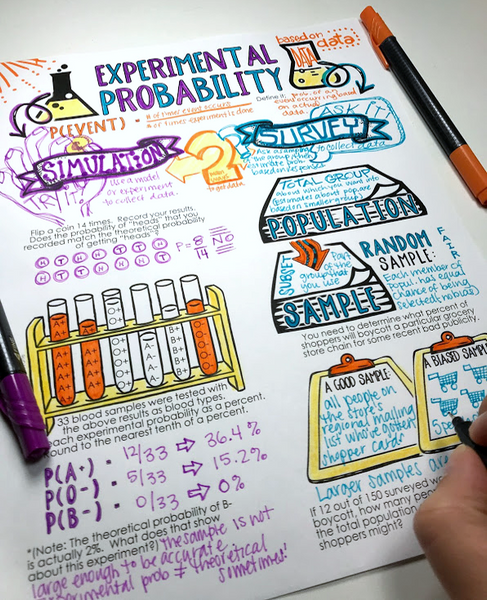 EXPERIMENTAL
PROBABILITY
based on
data
DATA
P(EVENT) = # of times event occurs
# of times experiment is done
Define it: prob. of an
event occurring based
on actual
data.
SIMULATION
TRY IT!
Use a model
or experiment
to collect data.
?
to get data
ASK!
SURVEY
to collect data
Ask a sample of
the group, then
calculate prob.
based on responses
Flip a coin 14 times. Record your results.
Does the probability of "heads" that you
recorded match the theoretical probability
of getting "heads"?
P= 8
14
NO
TOTAL GROUP
about which you want info
(estimates about pop. are
based on smaller group)
POPULATION
SUBSET
Part
of the
group that
you use
SAMPLE
RANDOM
SAMPLE:
FAIR
Each member of
popul. has equal
chance of being
selected; no bias
You need to determine what percent of
shoppers will boycott a particular grocery
store chain for some recent bad publicity.
A+ A+ A+ A+
O+ O+ O+ O+
A- A- A-
B+ B+
O- O- O- O-
33 blood samples were tested with
the above results as blood types.
each experimental probability as a percent.
ound to the nearest tenth of a percent.
P(A+) = 12/33 ⇨ 36.4%
P(O-) = 5/33 ⇨ 15.2%
P(B-) = 0/33 ⇨ 0%
*(Note: The theoretical probability of B-
is actually 2%. What does that show
about this experiment?) the sample is not
large enough to be accurate
experimental prob ≠ theoretical
sometimes!
A GOOD SAMPLE:
all people on
the store's
regional mailing
list who've gotten
shopper cards
A BIASED SAMP
Spe
Larger samples are
If 12 out of 150 surveyed wo
boycott, how many peo
the total population
shoppers might?